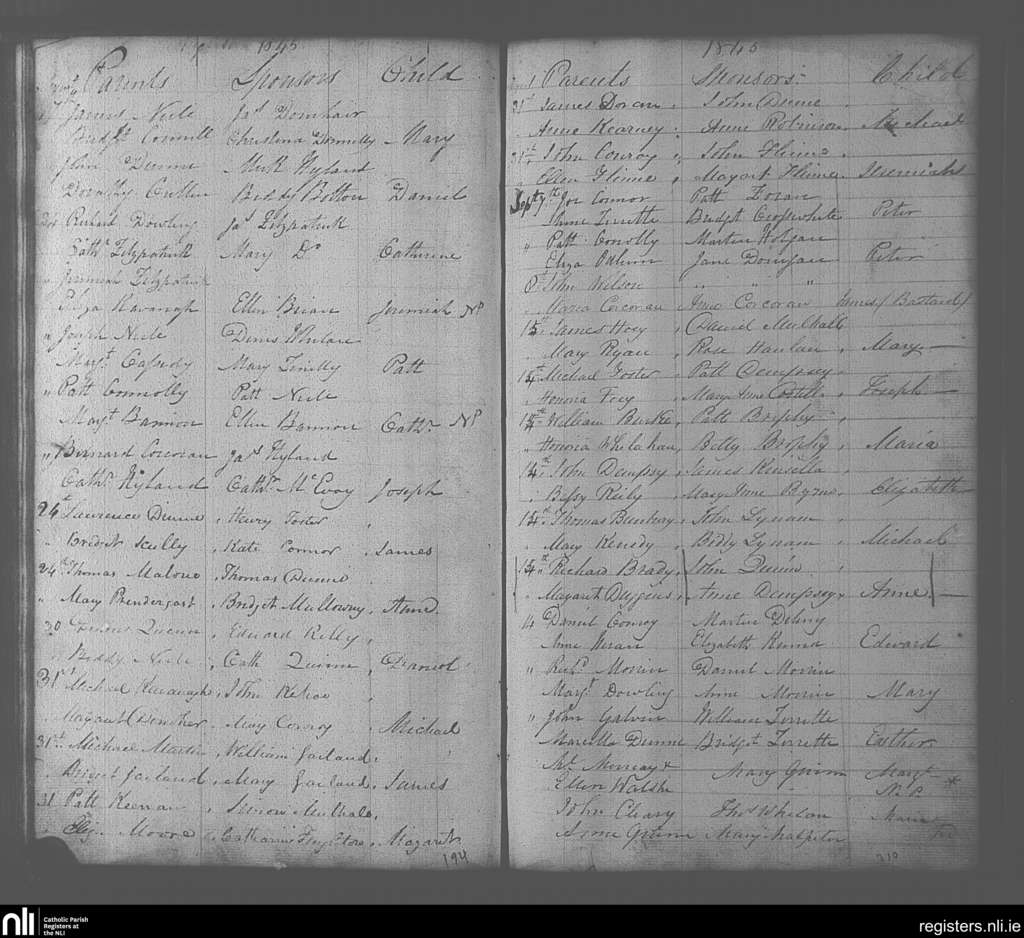 1845
Parents Sponsors Child
James Neile Jas
Bridgt Christina Donnelly Mary
John Dunne Hyland
Dorothy Cullen Biddy Bolton Daniel
Richard Dowling Jas Fitzpatrick
Cathe Fitzpatrick Mary Do Catherine
" Jeremiah Fitzpatrick
Eliza Kavanagh Ellen Brian Jeremiah NP
" Joseph Neile Denis Whelan
Margt Cassidy Mary Patt
" Patt Connolly Patt Neile
Margt Bannon Ellen Bannon Cathe NP
" Bernard Corcoran Jas Hyland
Cathe Hyland Cathe McEvoy Joseph
24th Lawrence Dunne , Henry Foster ,
" Bridget Scully , Kate Connor , James
24th Thomas Malone , Thomas Dunne
" Mary Prendergast , Bridget Mullowny , Anne
30 Quinn , Edward Kelly ,
" Biddy Neile , Cath Quinn , Daniel
31st Michael Kavanagh , John Kehoe ,
Magaret , May Conroy , Michael
31st Michael Martin , William Garland ,
Bridget Garland , Mary Garland , James
31 Patt Keenan , Simon Mulhale ,
" Eliz. Moore , Catharine , Magaret
194
1845
Parents Sponsors Child
31st James Doran , John Dunne
" Anne Kearney , Anne Robinson , Michael
31st John Conroy , John Flinne ,
" Ellen Flinne , Magaret Flinne , Jeremiah
Septr 7th Jos Connor Patt Foran
Anne Tirrette Bridget Crosswhite Peter
" Patt Conolly Martin Holgan
Eliza Jane Donegan Peter
8 John Wilson " " "
Maria Corcoran Anne Corcoran James (Bastard)
15th James Hoey , Daniel Mulhall
" Mary Ryan , Rose Hanlan , Mary
14th Michael Foster , Patt Dempsey ,
" Honoria Foy , Mary Anne Costill , Joseph
14th William Burke , Patt Brophy ,
" Honoria Whelahan , Betty Brophy , Maria
14th John Dempsy , James Kinsella ,
" Bessy Reily , Mary Anne Byrne , Elizabeth
14th Thomas , John Lynam ,
" Mary Kenedy , Biddy Lynam , Michael
14th Richard Brady , John Quinn ,
" Magaret Duggins , Anne Dempsey , Anne
14 Daniel Conroy Martin Delany
Anne Elizabeth Edward
" Richd Morrin Daniel Morrin
Margt Dowling Anne Morrin Mary
" John Galvin William Tirrette
Marcella Dunne Bridget Tirrette Esther
Murray x Mary Quinn Margt
Ellen Walshe N.P. *
John Cleary Thos Whelan
Anne Quinn Mary Halpin
210
nli Catholic Parish
Registers at
the NLI
registers.nli.ie